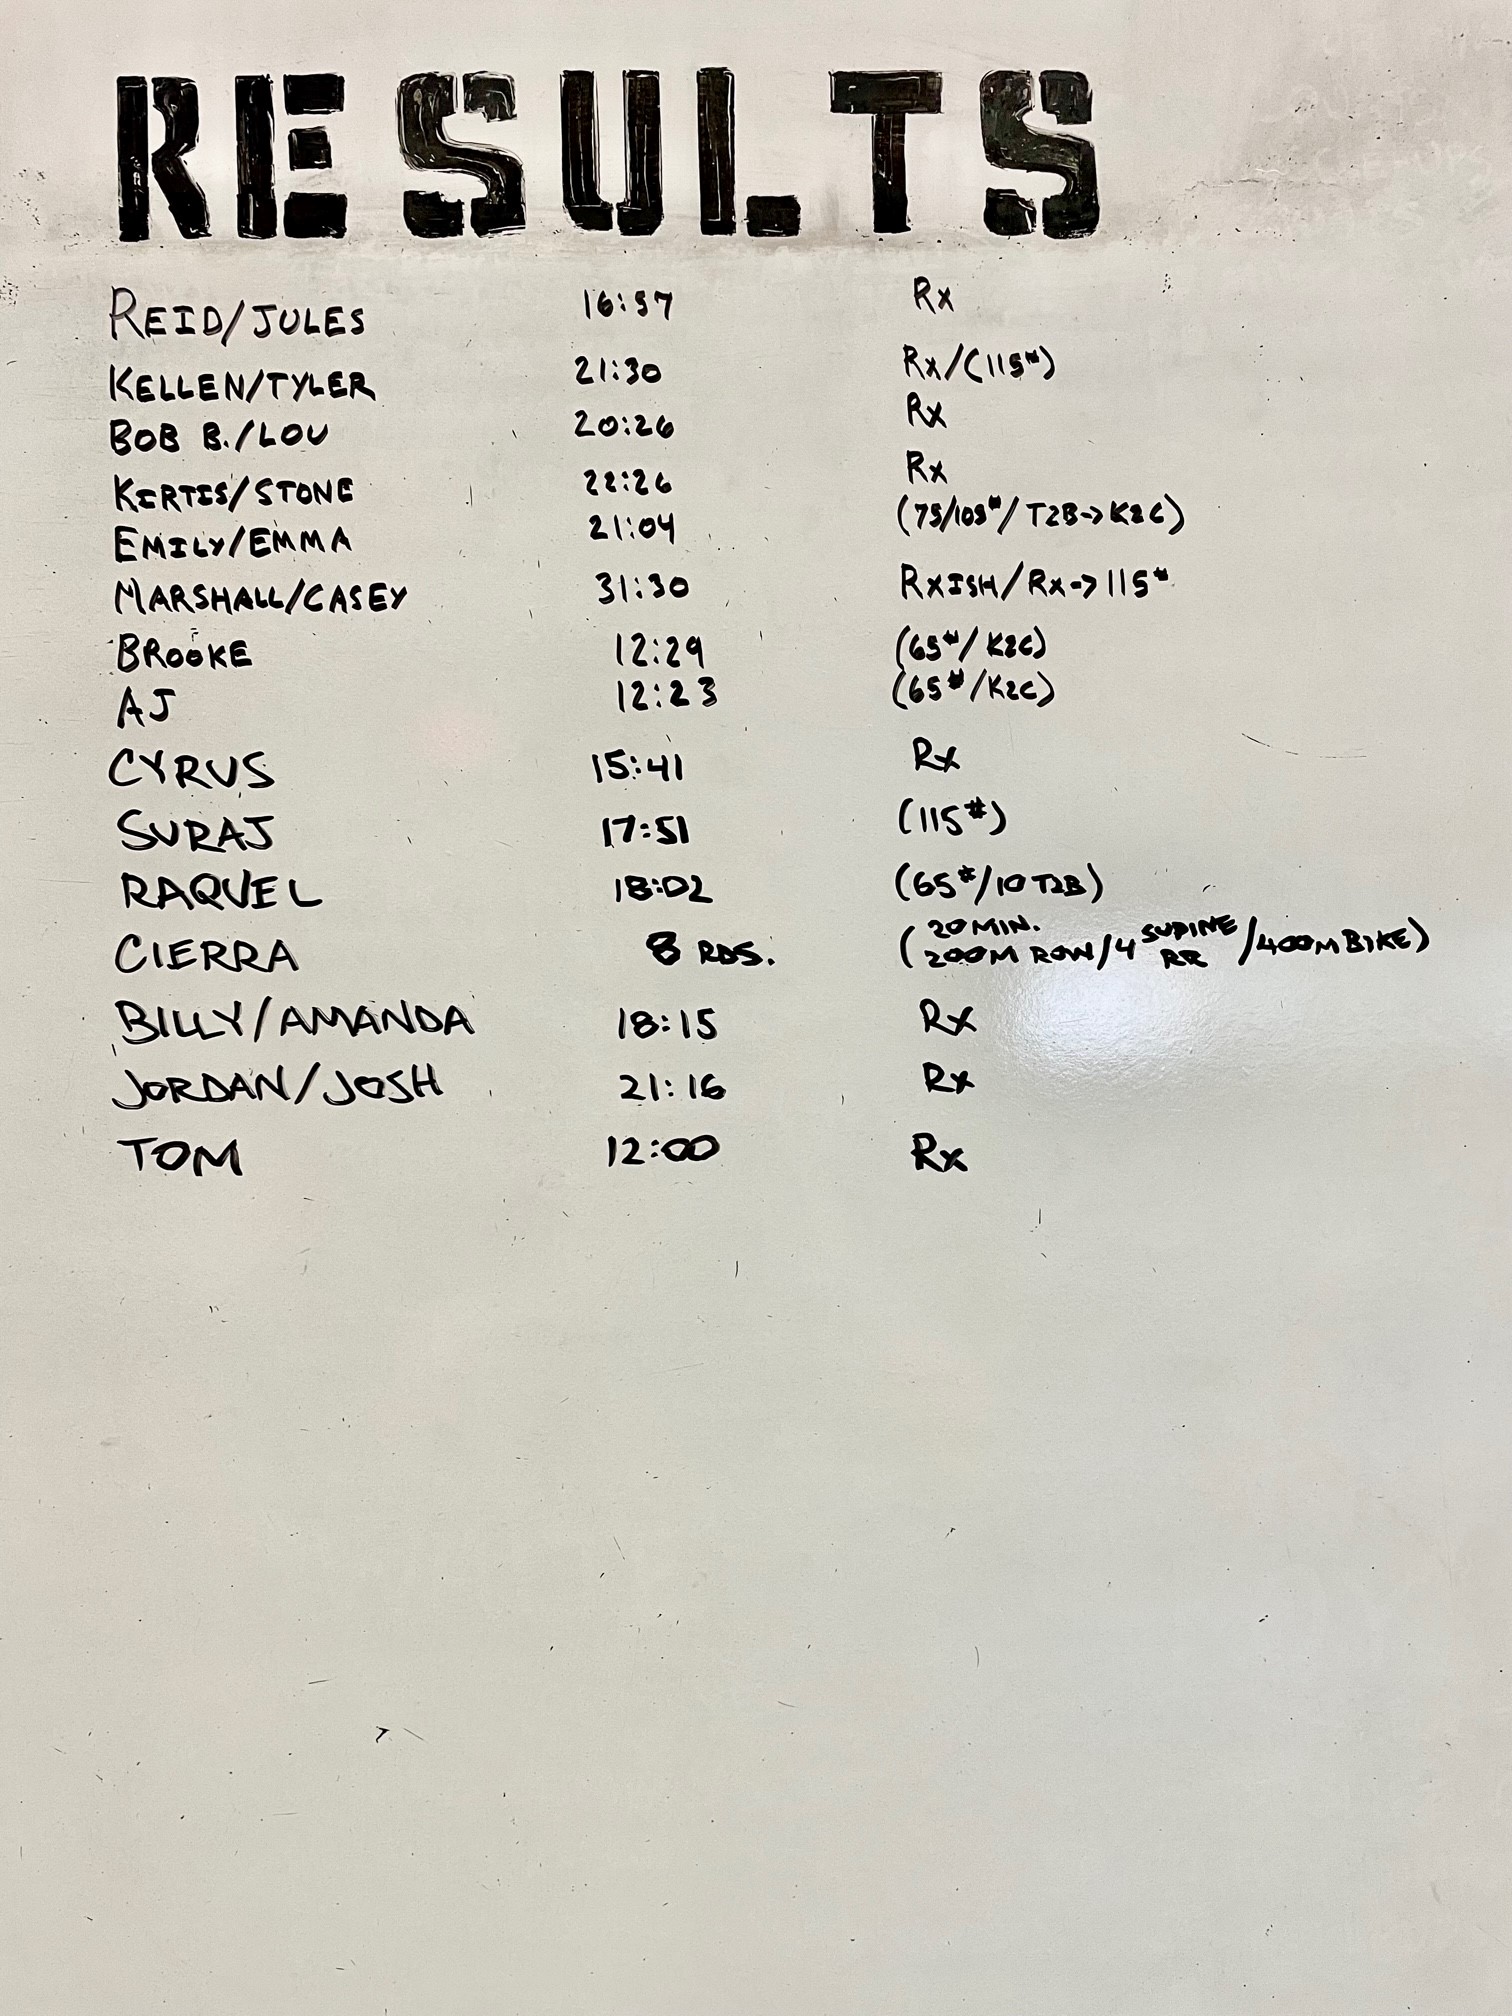 RESULTS
REID/JULES 16:57 Rx
KELLEN/TYLER 21:30 Rx/(115#)
BOB B./LOU 20:26 Rx
KIRTIS/STONE 22:26 Rx
EMILY/EMMA 21:04 (75/105#/T2B->K2C)
MARSHALL/CASEY 31:30 RXISH/Rx->115#
BROOKE 12:29 (65#/K2C)
AJ 12:23 (65#/K2C)
CYRUS 15:41 Rx
SURAJ 17:51 (115#)
RAQUEL 18:02 (65#/10 T2B)
CIERRA 8 RDS. (20 MIN. 200M ROW/4 SUPINE RR/400M BIKE)
BILLY/AMANDA 18:15 Rx
JORDAN/JOSH 21:16 Rx
TOM 12:00 Rx